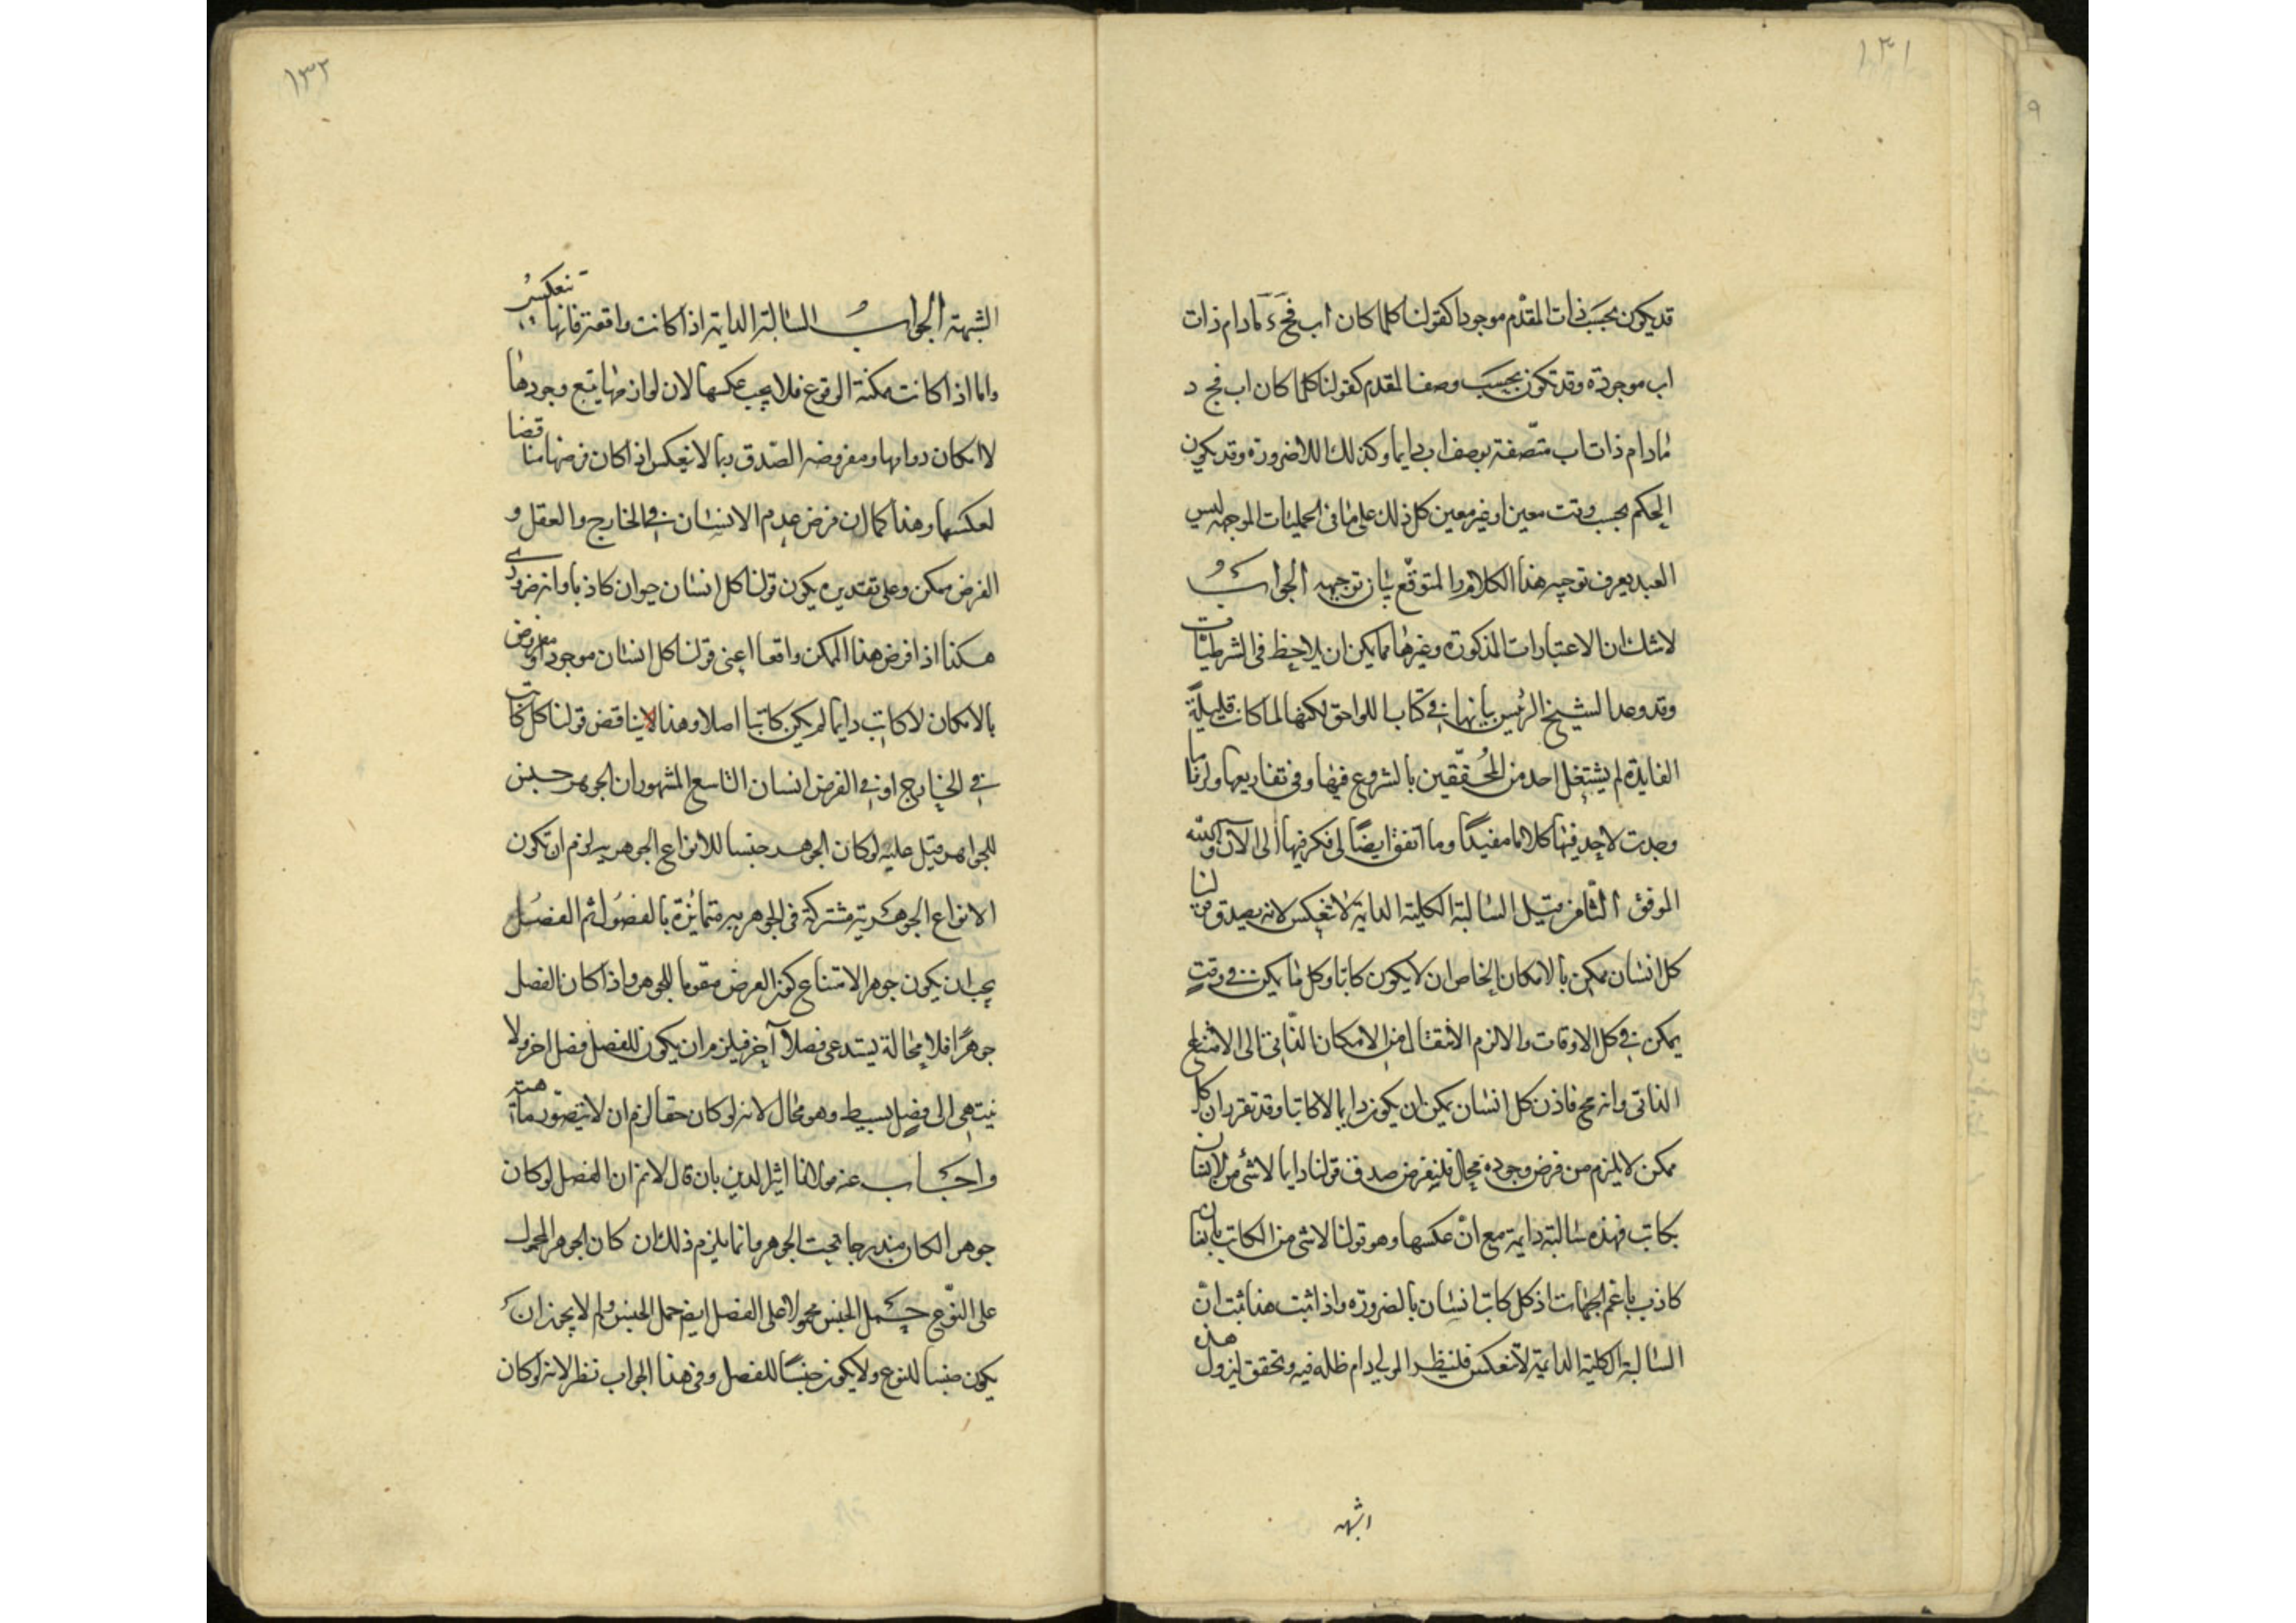 ١٣١
قد يكون بحسب ذات المقدم موجودا كقولنا كلما كان اب فج د مادام ذات
اب موجودة وقد تكون بحسب وصف المقدم كقولنا كلما كان اب فج د
مادام ذات اب متصفة بوصف اب دايما وكذلك للاضرورة وقد يكون
الحكم بحسب وقت معين او غير معين كل ذلك على ما فى الحمليات الموجهه ليس
العبد يعرف توجيه هذا الكلام والمتوقع بيان توجيهه الجواب
لا شك ان الاعتبارات المذكورة وغيرها مما يمكن ان يلاحظ فى الشرطيات
وقد وعد الشيخ الرئيس بيانها فى كتاب اللواحق لكنها لما كانت قليلة
الفايدة لم يشتغل احد من المحققين بالشروع فيها وفى تفاريعها ولا انا
وجدت لاحد فيها كلاما مفيدًا وما اتفق ايضًا لى فكر فيها الى الآن والله
الموفق الثامن قيل السالبة الكلية الدايمة لا تنعكس لانه يصدق قولنا
كل انسان ممكن بالامكان الخاص ان لا يكون كاتبا وكل ما يمكن فى وقتٍ
يمكن فى كل الاوقات والا لزم الانتقال من الامكان الذاتى الى الامتناع
الذاتى وانه مح فاذن كل انسان يمكن ان يكون دايما لا كاتبا وقد تقرر ان كل
ممكن لا يلزم من فرض وجوده محال فليفرض صدق قولنا دايما لا شئ من الانسان
بكاتب فهذه سالبة دايمة مع انّ عكسها وهو قولنا لا شئ من الكاتب بانسان
كاذب باعم الجهات اذ كل كاتب انسان بالضرورة واذا ثبت هذا ثبت انّ
السالبة الكلية الدايمة لا تنعكس فلينظر المولى دام ظله فيه ويحقق ليزول هذه
الشبهة
١٣٢
الشبهة الجواب السالبة الدايمة اذا كانت واقعة فانها تنعكس
واما اذا كانت ممكنة الوقوع فلا يجب عكسها لان لوازمها يتبع وجودها
لا امكان دوامها ومفروضة الصدق ربما لا ينعكس اذا كان فرضها مناقضا
لعكسها وهذا كما ان فرض عدم الانسان فى الخارج والعقل و
الفرض ممكن وعلى تقديره يكون قولنا كل انسان حيوان كاذبا وانه ضرورى
هكذا اذا فرض هذا الممكن واقعا اعنى قولنا كل انسان موجود او مفروض
بالامكان لا كاتب دايما لم يكن كاتبا اصلا وهذا لا يناقض قولنا كل كاتب
فى الخارج او فى الفرض انسان التاسع المشهور ان الجوهر جنس
للجواهر قيل عليه لو كان الجوهر جنسا للانواع الجوهرية لزم ان تكون
الانواع الجوهرية مشتركة فى الجوهرية متمايزة بالفصول ثم الفصل
يجب ان يكون جوهرا لامتناع كون العرض مقوما للجوهر واذا كان الفصل
جوهرًا فلا محالة يستدعى فصلاً آخر فيلزم ان يكون للفصل فصل اخر ولا
ينتهى الى فصل بسيط وهو محال لانه لو كان حقا لزم ان لا يتصور ماهية
واجاب عنه مولانا اثير الدين بان قال لانم ان الفصل لو كان
جوهرا لكان مندرجا تحت الجوهر وانما يلزم ذلك ان كان الجوهر المحمول
على النوع حمل الجنس محمولا على الفصل ايضا حمل الجنس ولم لا يجوز ان
يكون جنسا للنوع ولا يكون جنسًا للفصل وفى هذا الجواب نظر لانه لو كان